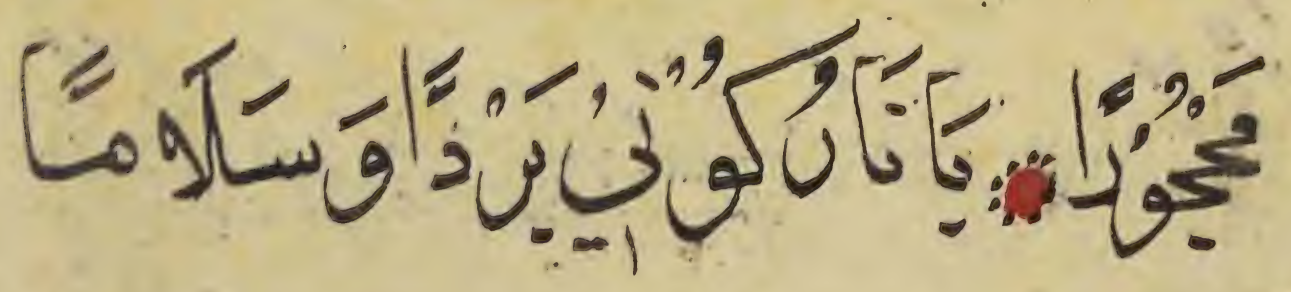 مَحْجُوْرًا يَا نَارُ كُوْنِيْ بَرْدًا وَسَلَامًا